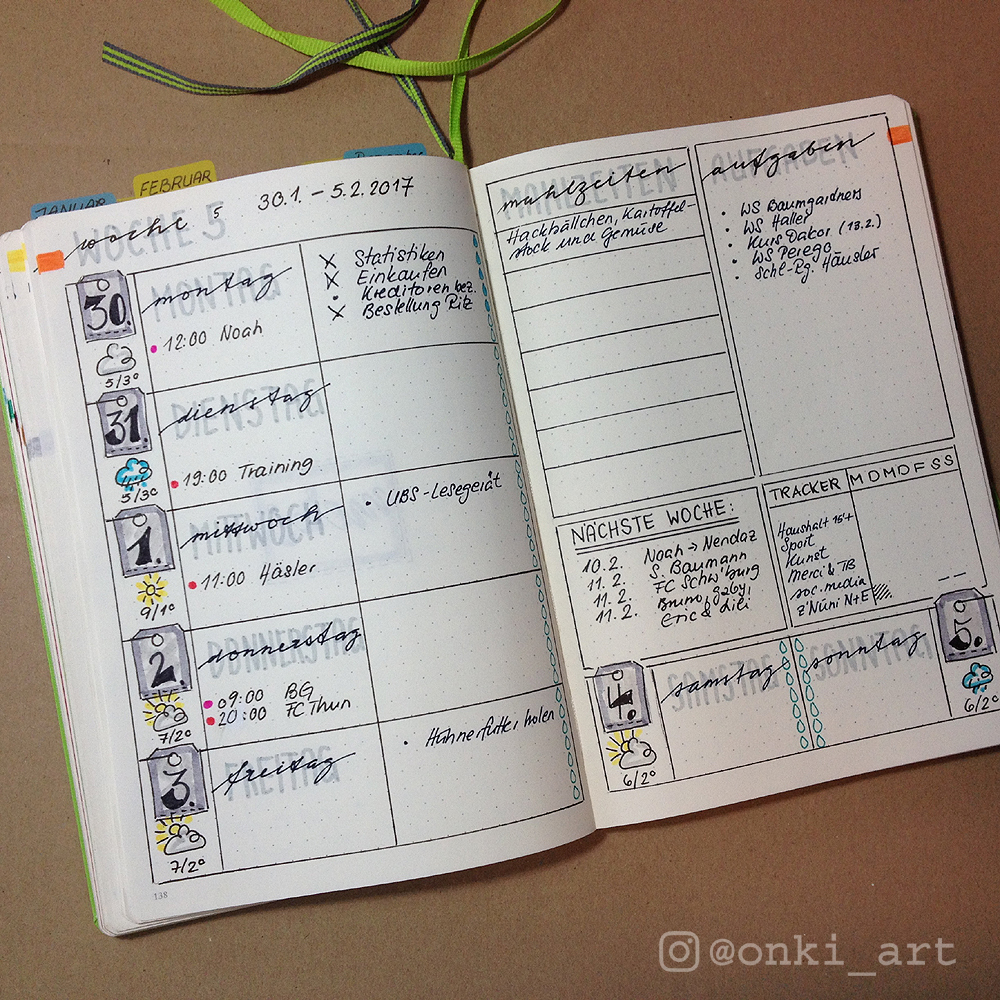 JANUAR
FEBRUAR
WOCHE 5
woche 5
30.1. – 5.2.2017
30.
MONTAG
montag
12:00 Noah
5/3°
x Statistiken
x Einkaufen
• Kreditoren bez.
x Bestellung Ritz
31.
DIENSTAG
dienstag
19:00 Training
5/3°
1.
MITTWOCH
mittwoch
11:00 Häsler
9/1°
• UBS-Lesegerät
2.
DONNERSTAG
donnerstag
09:00 BG
20:00 FC Thun
7/2°
3.
FREITAG
freitag
7/2°
• Hühnerfutter holen
138
MAHLZEITEN
mahlzeiten
Hackbällchen, Kartoffel-
stock und Gemüse
AUFGABEN
aufgaben
• WS Baumgardners
• WS Haller
• Kurs Dakor (13.2.)
• WS Perego
• Schl-Rg. Häusler
NÄCHSTE WOCHE:
10.2. Noah → Nendaz
11.2. S. Baumann
11.2. FC Schw'burg
11.2. Bruno, Gaby,
Eric & Lili
TRACKER M D M D F S S
Haushalt 15'+
Sport
Kunst
Merci & TB
soc. media
Z'Nüni N+E
4.
SAMSTAG
samstag
6/2°
SONNTAG
sonntag
5.
6/2°
@onki_art